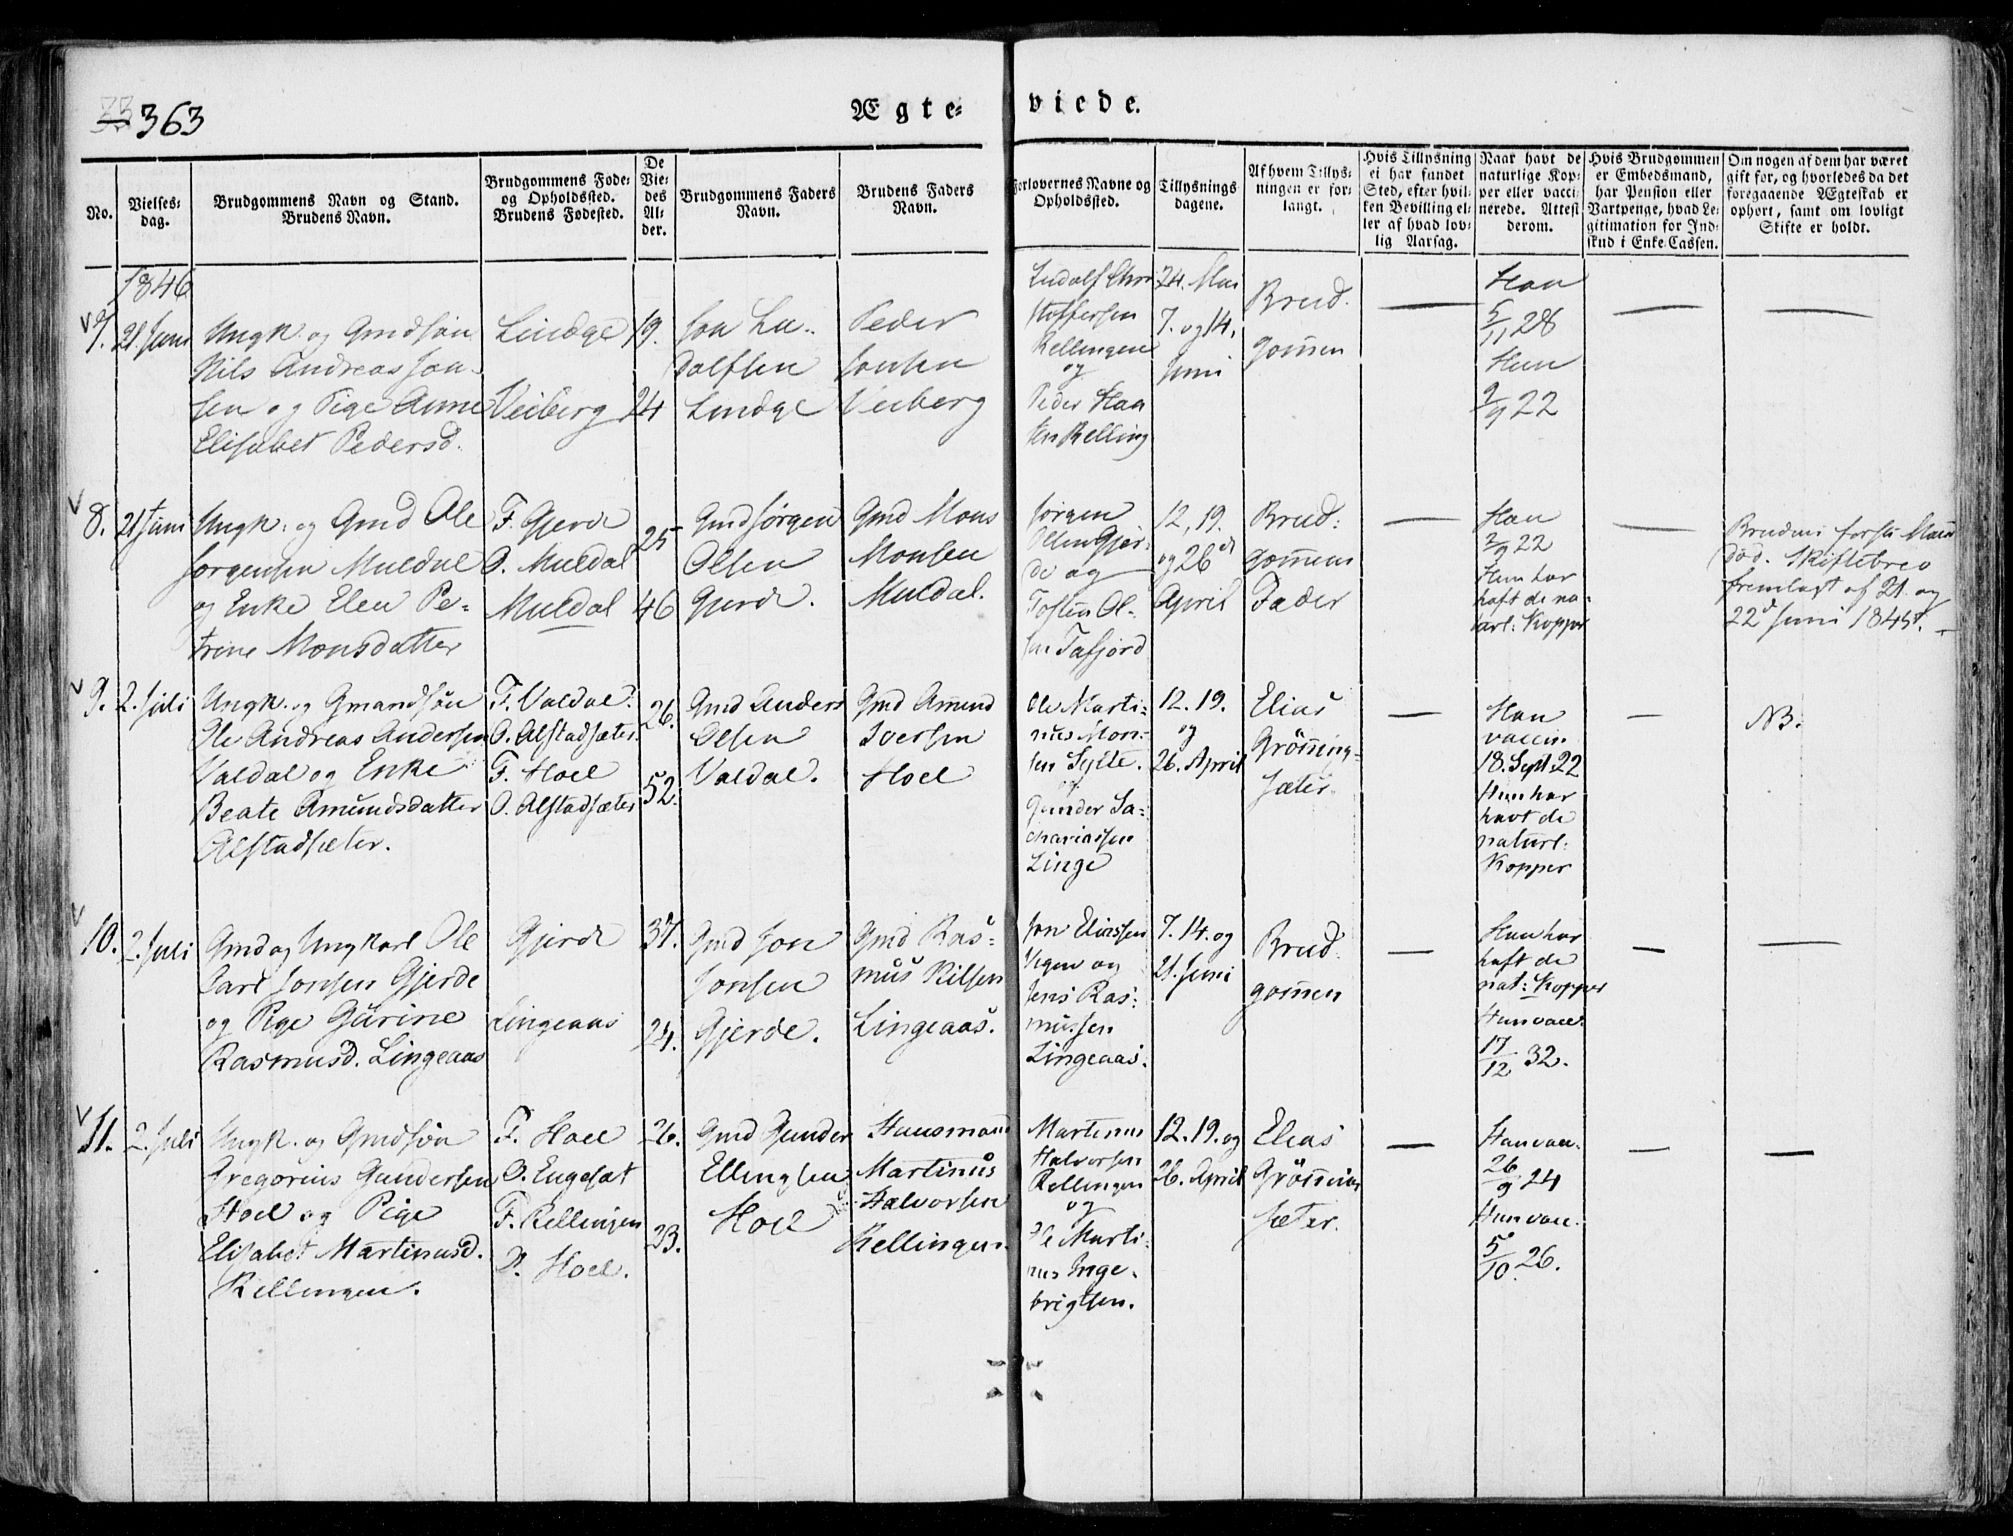 363
Ægte-
viede.
No.
Vielses-
dag.
Brudgommens Navn og Stand.
Brudens Navn.
Brudgommens Føde-
og Opholdssted.
Brudens Fødested.
De
Vie-
des
Al-
der.
Brudgommens Faders
Navn.
Brudens Faders
Navn.
Forlovernes Navne og
Opholdssted.
Tillysnings
dagene.
Af hvem Tillys-
ningen er for-
langt.
Hvis Tillysning
ei har fundet
Sted, efter hvil-
ken Bevilling el-
ler af hvad lov-
lig Aarsag.
Naar havt de
naturlige Kop-
per eller vacci-
nerede. Attest
derom.
Hvis Brudgommen
er Embedsmand,
har Pension eller
Vartpenge, hvad Le-
gitimation for Ind-
skud i Enke-Cassen.
Om nogen af dem har været
gift før, og hvorledes da det
foregaaende Ægteskab er
ophørt, samt om lovligt
Skifte er holdt.
1846
7. 21 Juni
Ungk. og Gmdsøn
Nils Andreas Jon-
sen og Pige Anne
Elisabet Pedersd.
Lindge
Veiberg
19.
24
Jon Lu-
dolfsen
Lindge
Peder
Jonsen
Veiberg
Ludolf Chri
stoffersen
Rellingen
og
Peder Han
sen Relling
24. Mai
7. og 14.
Juni
Brud-
gommen
Han
5/11 28
Hun
2/9 22
8. 21 Juni
Ungk. og Gmd Ole
Jørgensen Muldal
og Enke Elen Pe-
trine Monsdatter
F. Gjerde
O. Muldal
Muldal
25
46
Gmd Jørgen
Olsen
Gjerde.
Gmd Mons
Monsen
Muldal.
Jørgen
Olsen Gjer-
de og
Tosten Ol-
sen Tafjord
12, 19.
og 26de
April
Brud-
gommens
Fader
Han
2/9 22
Hun har
haft de na-
turl: Kopper
Brudens første Mand
død. Skiftebrev
fremlagt af 21. og
22d Juni 1845.
9. 2. Juli
Ungk. og Gmandsøn
Ole Andreas Andersen
Valdal og Enke
Beate Amundsdatter
Alstadsæter.
F. Valdal.
O. Alstadsæter.
F. Hoel
O. Alstadsæter
26.
52.
Gmd Anders
Olsen
Valdal.
Gmd Amund
Iversen
Hoel
Ole Marti-
nus Mon-
sen Sylte.
og
Gunder Sa-
chariassen
Linge
12. 19.
og
26. April
Elias
Grønning-
sæter.
Han
vaccin.
18. Sept. 22
Hun har
havt de
naturl:
Kopper
NB.
10. 2. Juli
Gmd og Ungkarl Ole
Carl Jonsen Gjerde
og Pige Gurine
Rasmusd. Lingeaas
Gjerde
Lingeaas
37.
24.
Gmd Jon
Jonsen
Gjerde.
Gmd Ras-
mus Nilsen
Lingeaas.
Jon Eliassen
og
Jens Ras-
mussen
Lingeaas.
7. 14. og
21. Juni
Brud
gommen
Han har
haft de
nat: Kopper
Hun vacc.
17/12 32.
11. 2. Juli
Ungk. og Gmdsøn
Gregorius Gundersen
Hoel og Pige
Elisabet Martinusd.
Rellingen.
F. Hoel
O. Engeset
F. Rellingen
O. Hoel.
26.
23.
Gmd Gunder
Ellingsen
Hoel
Huusmand
Martinus
Halvorsen
Rellingen.
Martinus
Halvorsen
Rellingen
og
Ole Marti-
nus Inge-
brigtsen.
12. 19. og
26. April
Elias
Grønning
sæter.
Han vacc.
26/9 24
Hun vacc.
5/10 26.